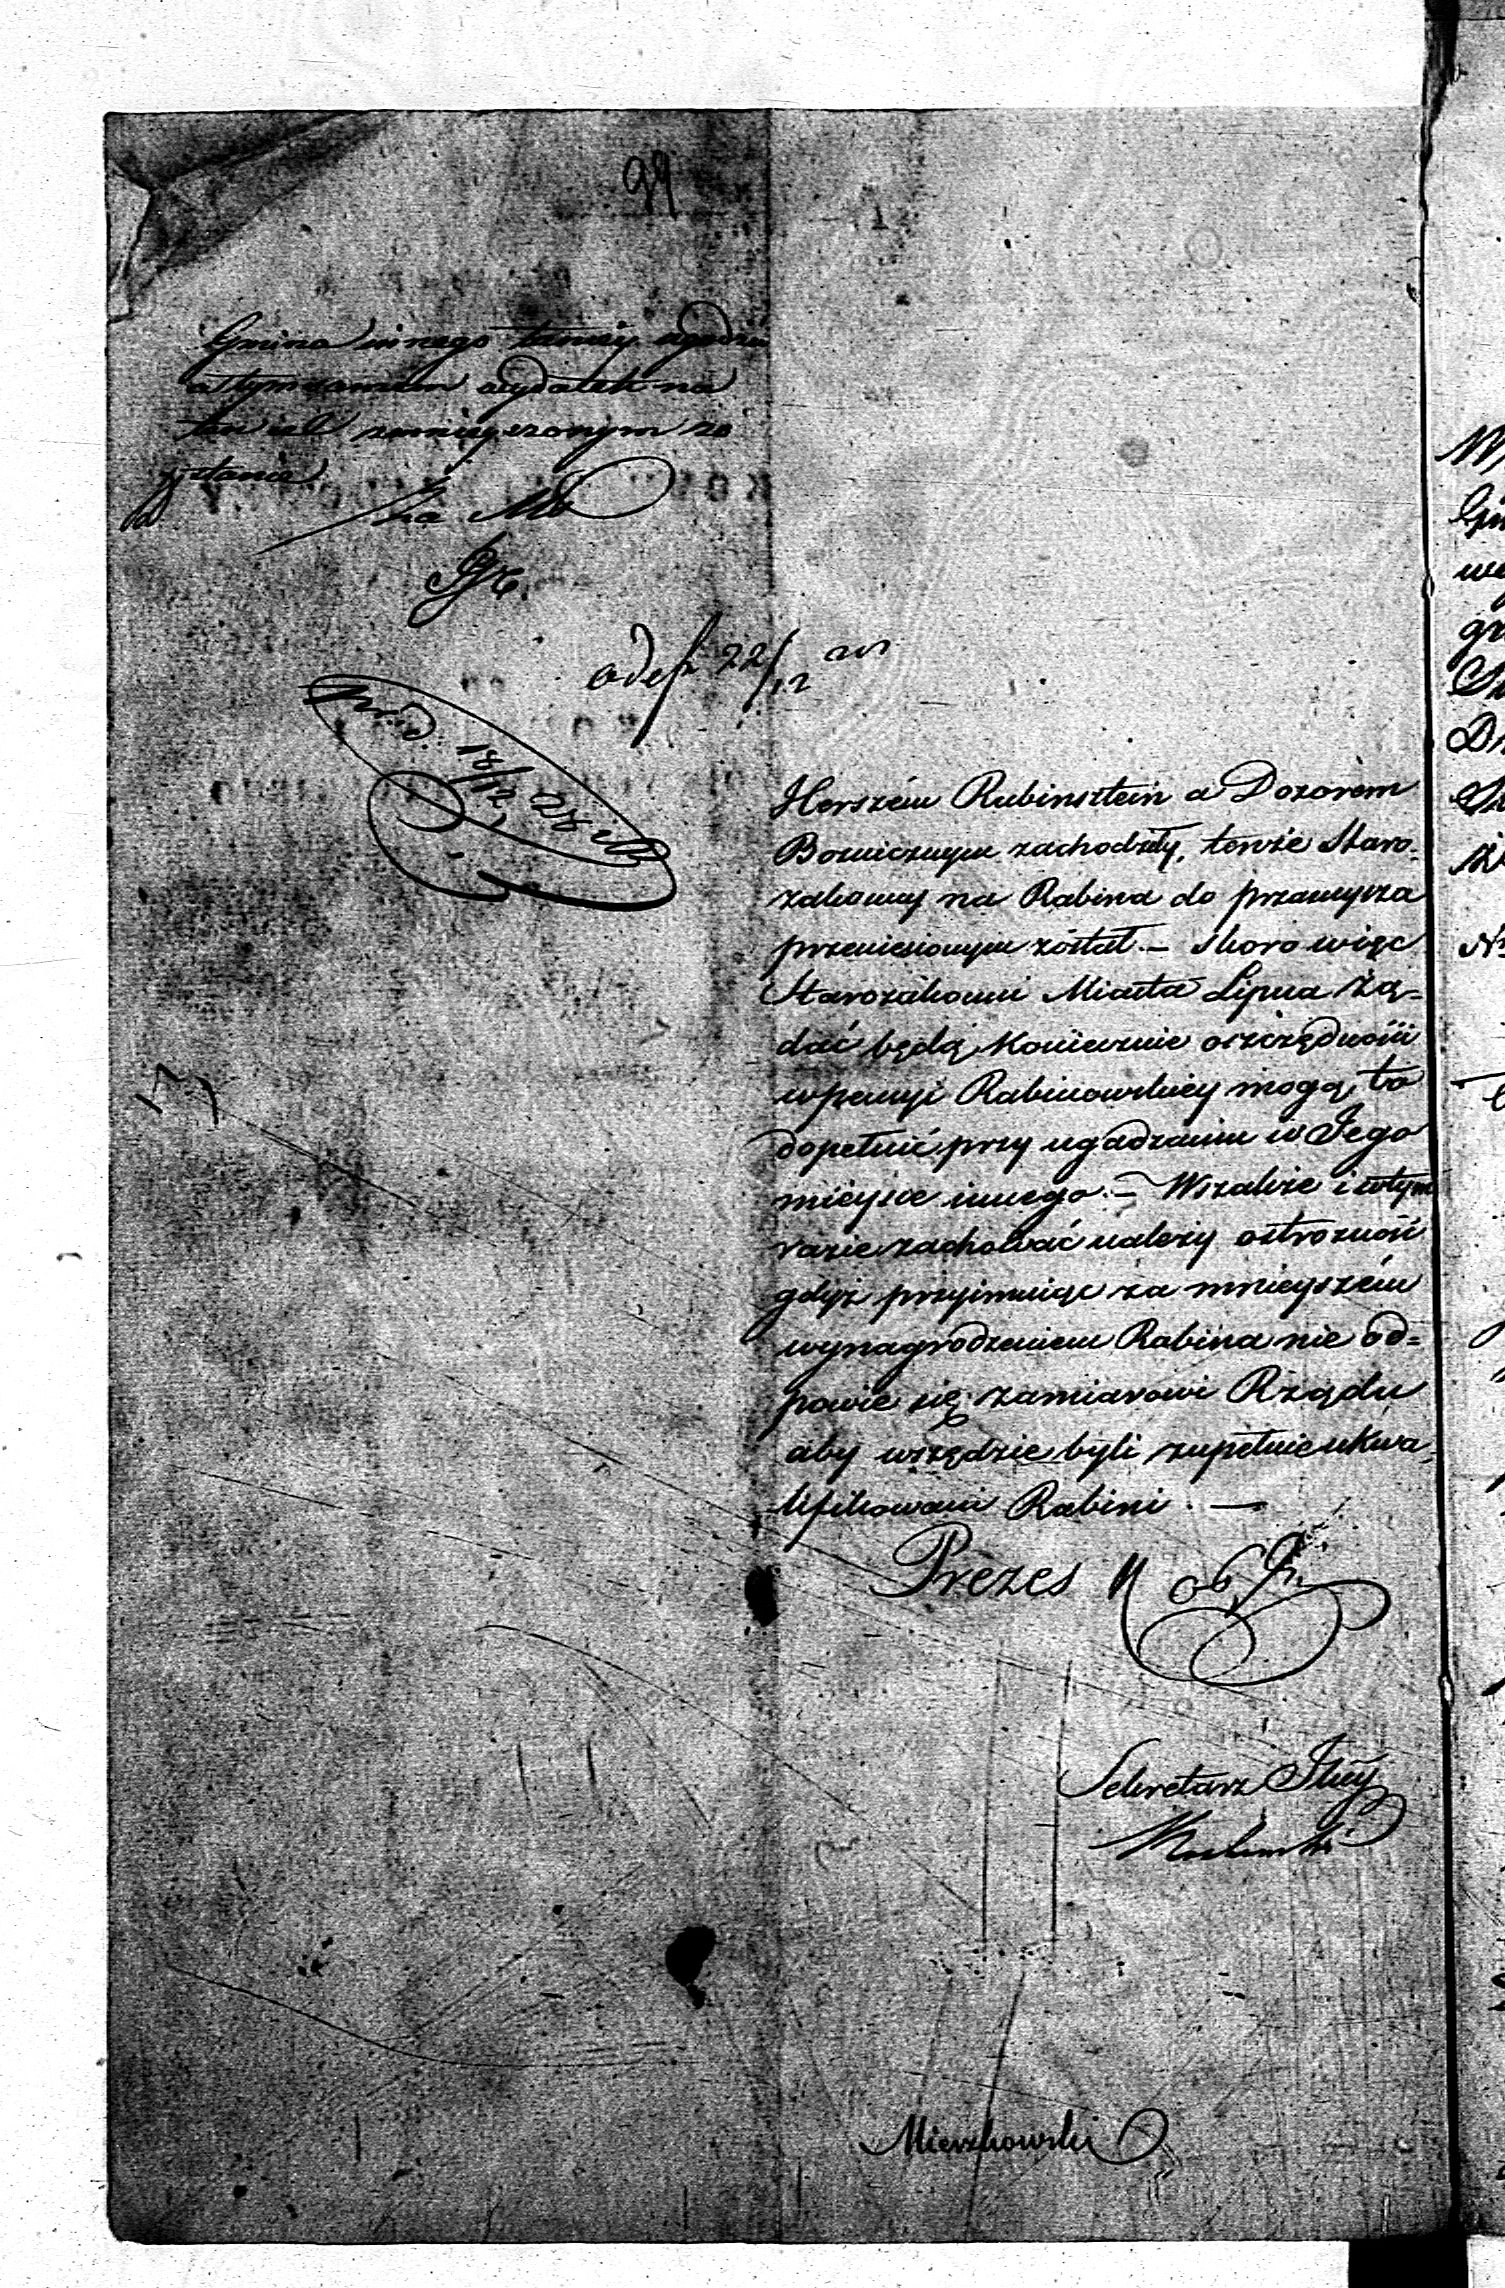 99
Gmina innego taniej ugodzi
a tymczasem wydatek na
ten cel zmniejszonym zo
stanie.
Za
odesz 22/12
18/12
17
Herszem Rubinsztein a Dozorem
Boznicznym zachodziły, tenże Staro-
zakonny na Rabina do przasnysza
przeniesionym został. — Skoro więc
Starozakonni Miasta Lipna żą-
dać będą koniecznie oszczędności
w pensyi Rabinowskiey mogą to
dopełnić przy ugadzaniu w Jego
mieysce innego. — Wszakże i w tym
razie zachować należy ostrożność
gdyż przyjmując za mnieyszém
wynagrodzeniem Rabina nie od-
powie się zamiarowi Rządu
aby wszędzie byli zupełnie ukwa-
lifikowani Rabini. —
Prezes
Sekretarz Jlny
Mierzkowski